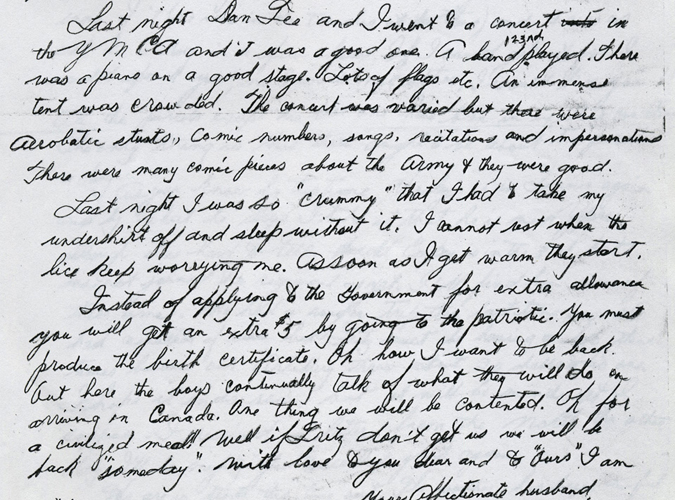 Last night Dan Lee and I went to a concert in
the Y M C A and it was a good one. A 123rd band played. There
was a piano on a good stage. Lots of flags etc. An immense
tent was crowded. The concert was varied but there were
Acrobatic stunts, Comic numbers, songs, recitations and impersonations
There were many comic pieces about the Army & they were good.
Last night I was so "crummy" that I had to take my
undershirt off and sleep without it. I cannot rest when the
lice keep worrying me. As soon as I get warm they start.
Instead of applying to the Government for extra allowance
you will get an extra $5 by going to the patriotic. You must
produce the birth certificate. Oh how I want to be back.
Out here the boys continually talk of what they will do on
arriving in Canada. One thing we will be contented. Oh for
a civilized meal! Well if Fritz don't get us we will be
back "someday". With love to you dear and to "Ours" I am
Your Affectionate husband